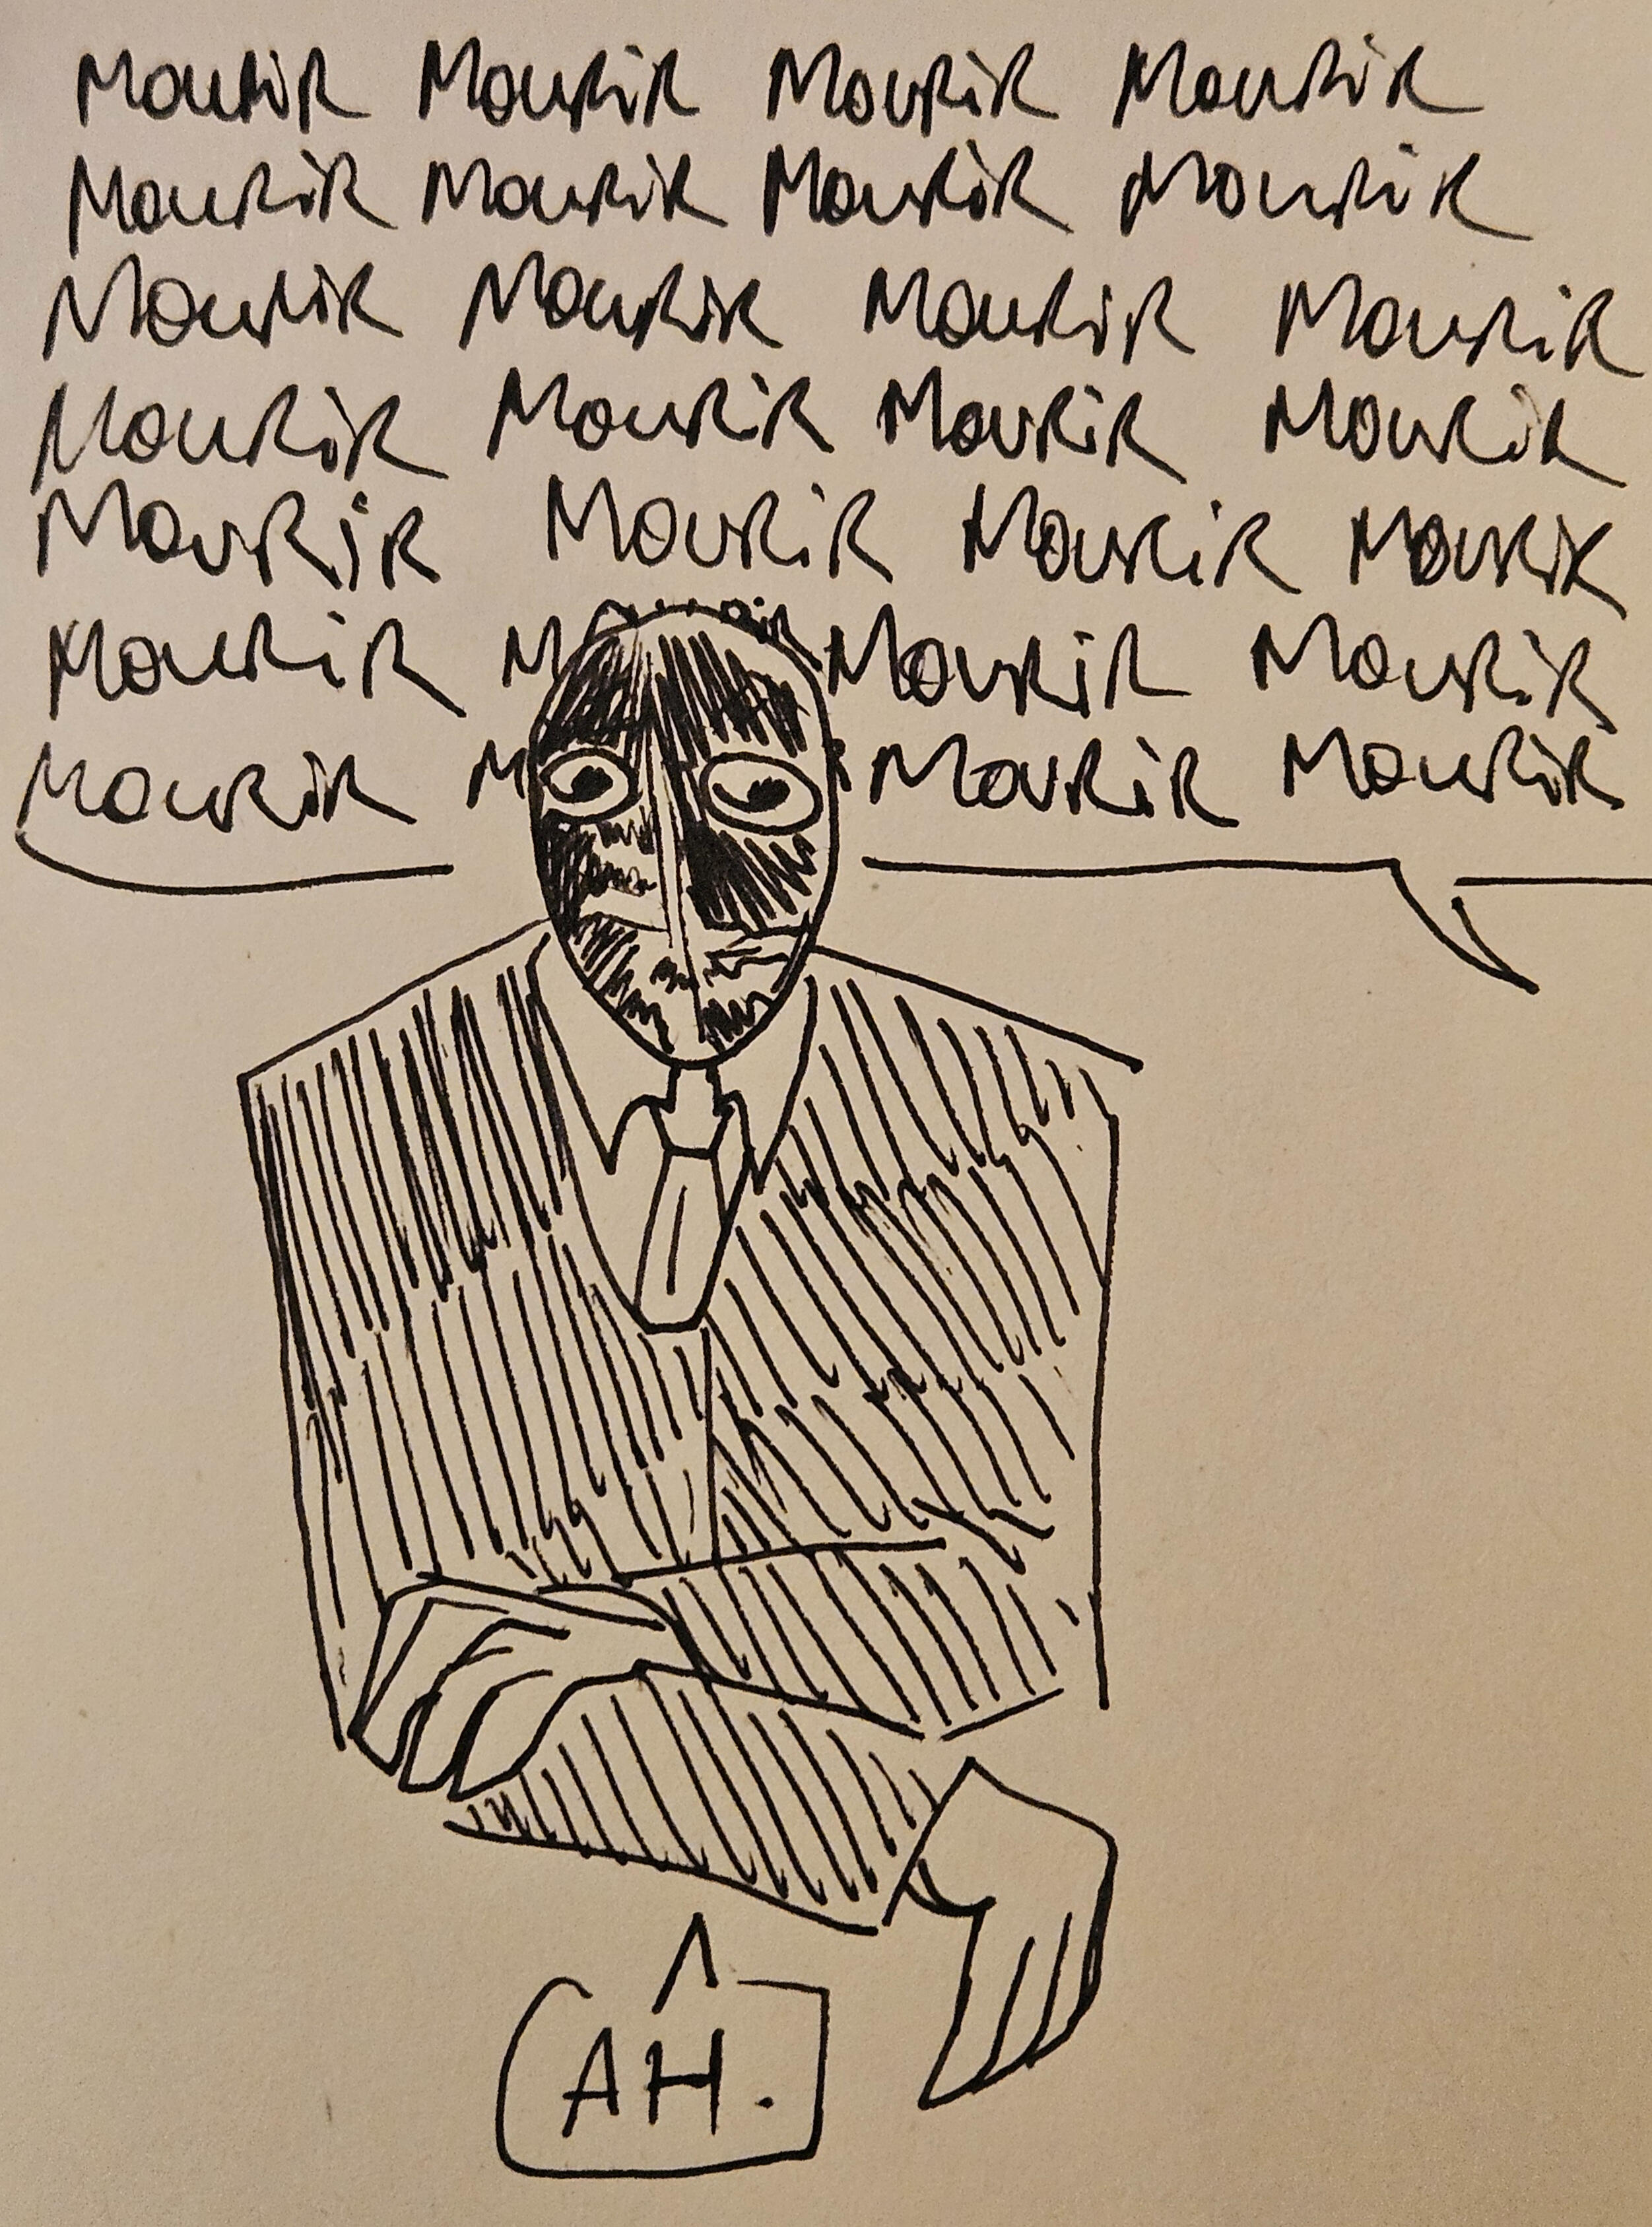 Mourir Mourir Mourir Mourir
Mourir Mourir Mourir Mourir
Mourir Mourir Mourir Mourir
Mourir Mourir Mourir Mourir
Mourir Mourir Mourir Mourir
Mourir M Mourir Mourir
Mourir M Mourir Mourir
AH.